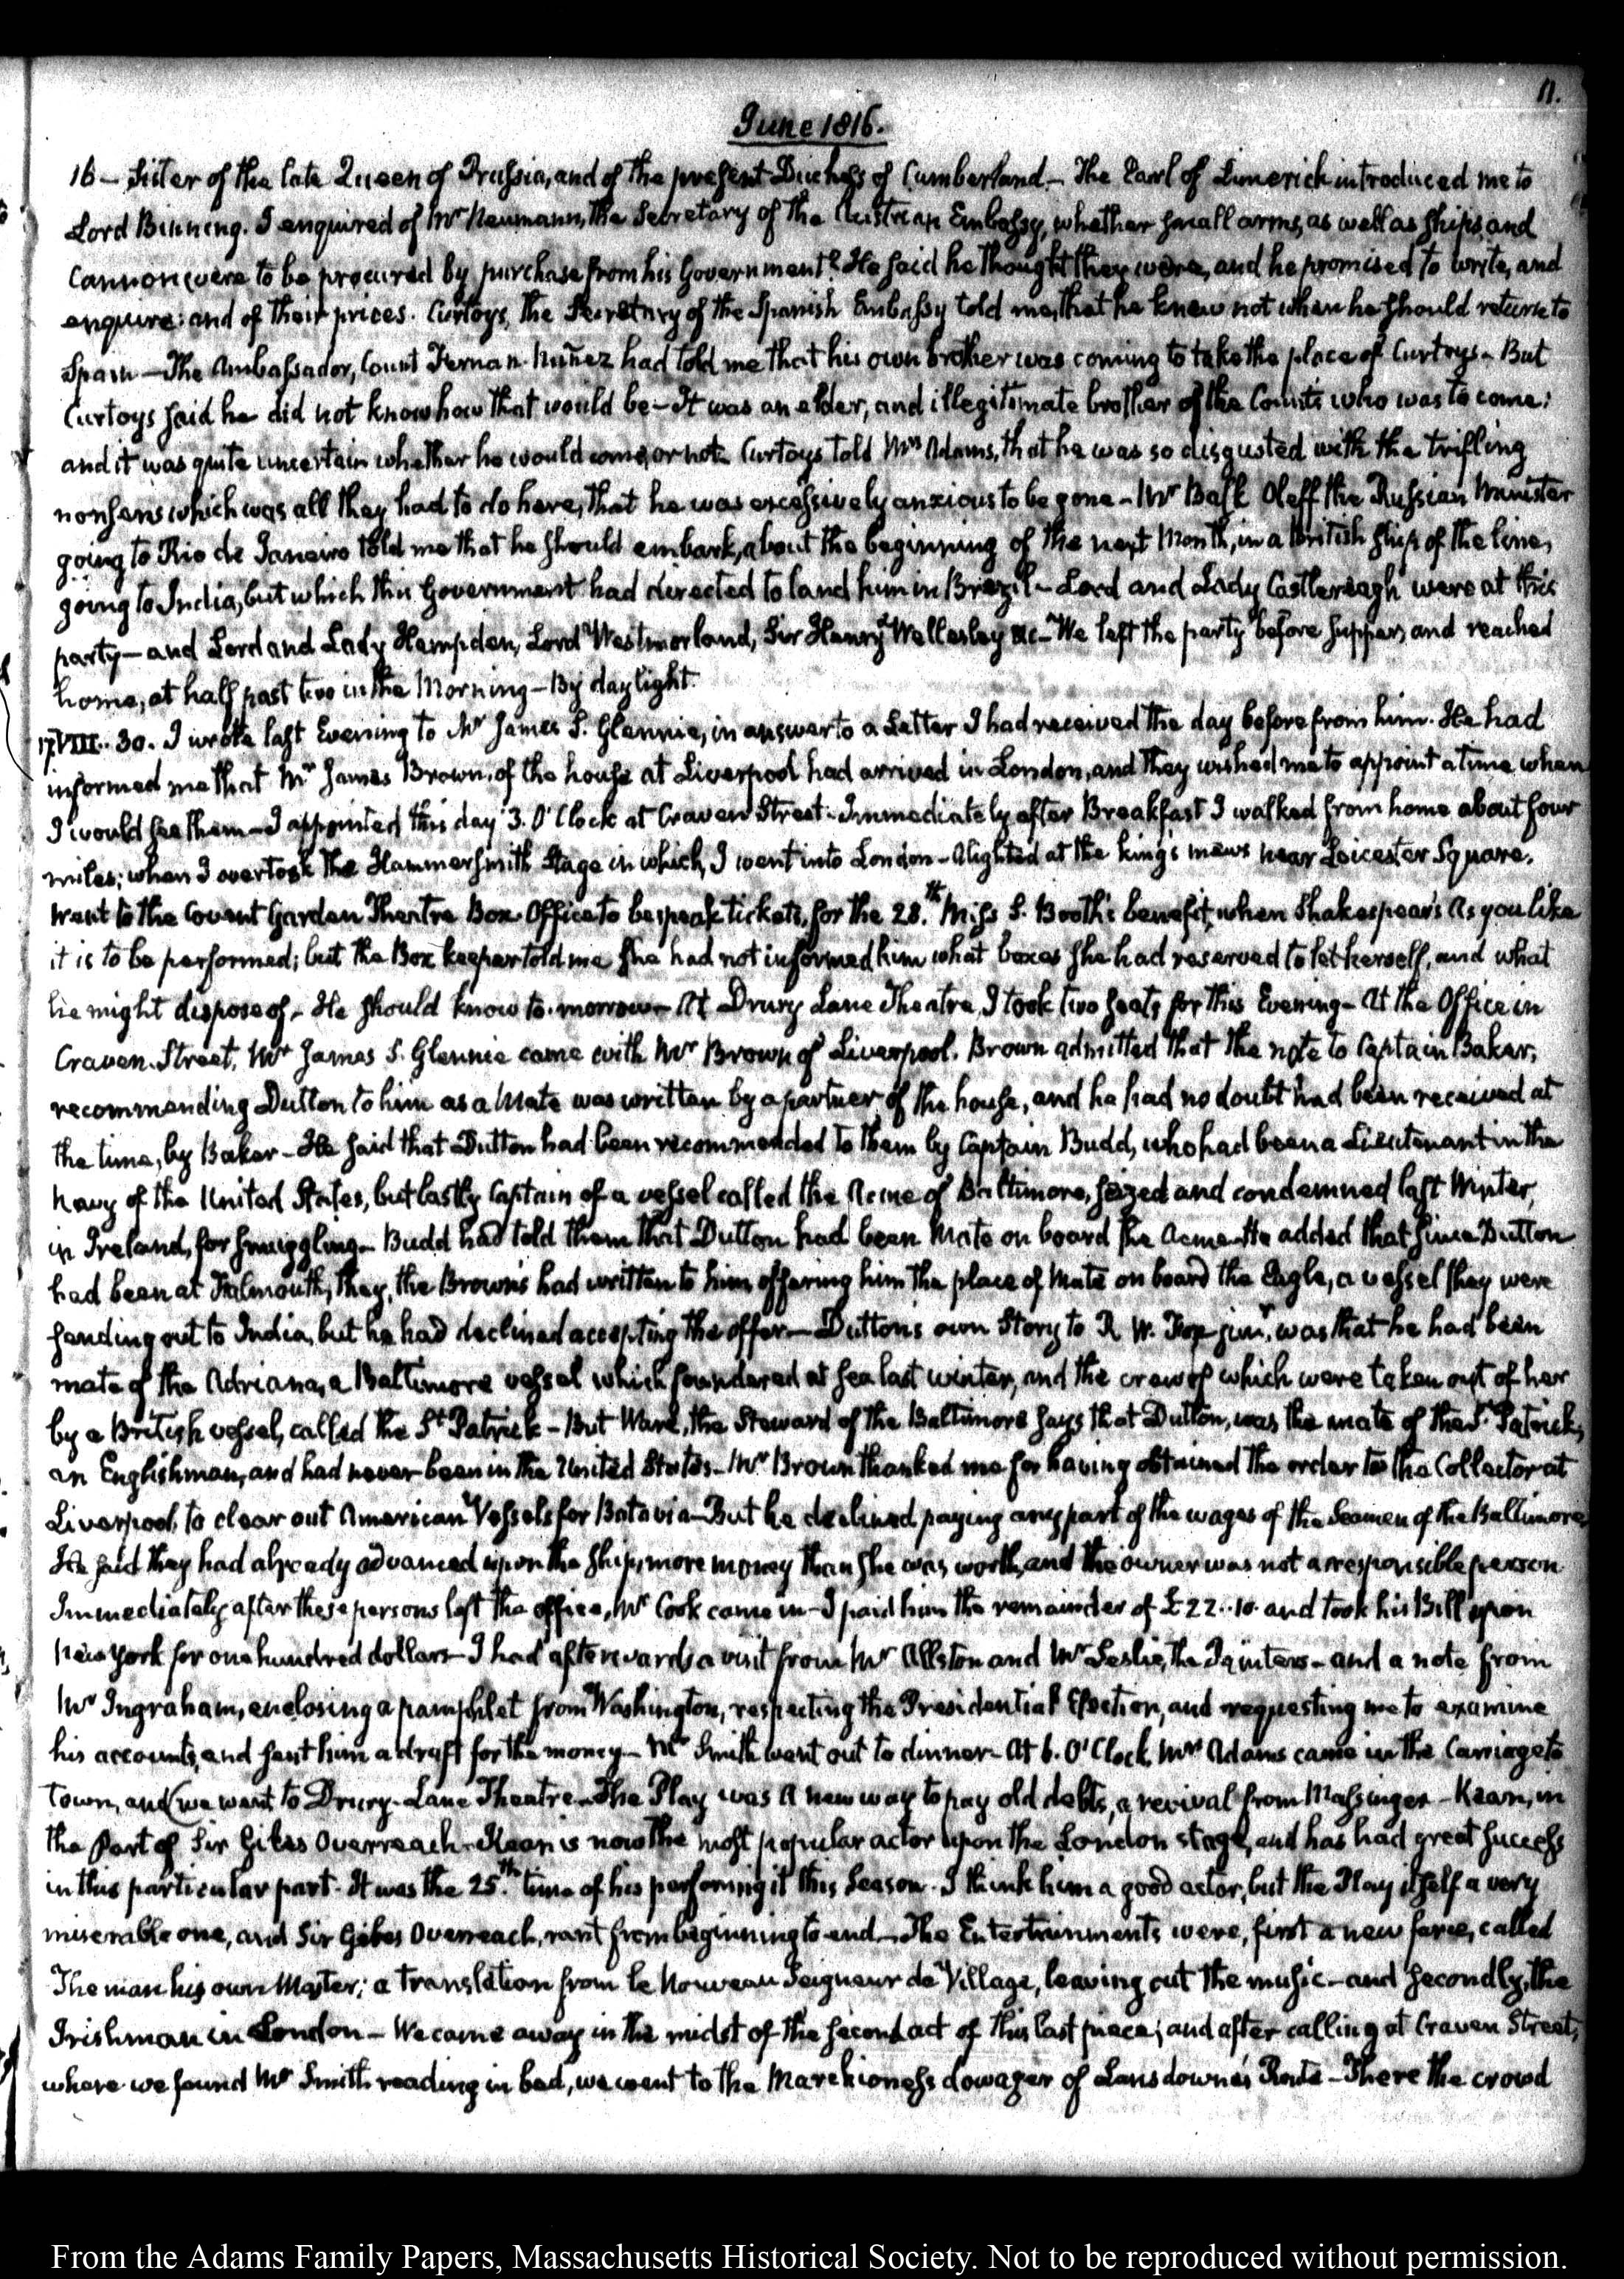 11.
June 1816.
16 – Sister of the late Queen of Prussia, and of the present Duchess of Cumberland – The Earl of Limerick introduced me to
Lord Binning. I enquired of Mr Neumann, the Secretary of the Austrian Embassy, whether small arms, as well as ships, and
Cannon were to be procured by purchase from his Government? He said he thought they were, and he promised to write, and
enquire: and of their prices. Curtoys, the Secretary of the Spanish Embassy told me, that he knew not when he should return to
Spain – The Ambassador, Count Fernan-Nuñez had told me that his own brother was coming to take the place of Curtoys – But
Curtoys said he did not know how that would be – It was an elder, and illegitimate brother of the Counts who was to come;
and it was quite uncertain whether he would come, or not – Curtoys told Mrs Adams, that he was so disgusted with the trifling
nonsens which was all they had to do here, that he was excessively anxious to be gone – Mr Balk Oleff the Russian Minister
going to Rio de Janeiro told me that he should embark, about the beginning of the next Month, in a British ship of the line,
going to India, but which this Government had directed to land him in Brazil – Lord and Lady Castlereagh were at this
party – and Lord and Lady Hampden, Lord Westmorland, Sir Henry Wellesley &c – We left the party before supper, and reached
home, at half past two in the Morning – By daylight.
17. VIII. 30. I wrote last Evening to Mr James S. Glennie, in answer to a Letter I had received the day before from him. He had
informed me that Mr James Brown, of the house at Liverpool had arrived in London, and they wished me to appoint a time when
I would see them – I appointed this day 3. O'Clock at Craven Street. Immediately after Breakfast I walked from home about four
miles; when I overtook the Hammersmith Stage in which, I went into London – Alighted at the king's mews near Leicester Square.
Went to the Covent Garden Theatre Box-Office to bespeak tickets, for the 28.th Miss S. Booth's benefit, when Shakespear's As you like
it is to be performed; but the Box keeper told me she had not informed him what boxes she had reserved to let herself, and what
he might dispose of – He should know to-morrow – At Drury Lane Theatre, I took two seats for this Evening – At the Office in
Craven-Street, Mr James S. Glennie came with Mr Brown of Liverpool. Brown admitted that the note to Captain Baker,
recommending Dutton to him as a Mate was written by a partner of the house, and he had no doubt had been received at
the time, by Baker – He said that Dutton had been recommended to them by Captain Budd, who had been a Lieutenant in the
Navy of the United States, but lastly Captain of a vessel called the Acme of Baltimore, seized and condemned last Winter,
in Ireland, for smuggling – Budd had told them that Dutton had been Mate on board the Acme – He added that since Dutton
had been at Falmouth, they, the Brown's had written to him offering him the place of Mate on board the Eagle, a vessel they were
sending out to India, but he had declined accepting the offer – Dutton's own Story to R. W. Fox junr, was that he had been
mate of the Adriana, a Baltimore vessel which foundered at sea last winter, and the crew of which were taken out of her
by a British vessel, called the St Patrick – But Ware, the Steward of the Baltimore says that Dutton, was the mate of the St Patrick,
an Englishman, and had never been in the United States – Mr Brown thanked me for having obtained the order to the Collector at
Liverpool, to clear out American Vessels for Batavia – But he declined paying any part of the wages of the Seamen of the Baltimore
He said they had already advanced upon the ship, more money than she was worth, and the owner was not a responsible person
Immediately after these persons left the office, Mr Cook came in – I paid him the remainder of £22..10. and took his Bill upon
New York for one hundred dollars – I had afterwards a visit from Mr Allston and Mr Leslie, the Painters – and a note from
Mr Ingraham, enclosing a pamphlet from Washington, respecting the Presidential Election, and requesting me to examine
his accounts, and sent him a draft for the money – Mr Smith went out to dinner – At 6. O'Clock Mrs Adams came in the Carriage to
town, and we went to Drury-Lane Theatre – The Play was A new way to pay old debts, a revival from Massinger – Kean, in
the Part of Sir Giles Overreach – Kean is now the most popular actor upon the London stage, and has had great success
in this particular part. It was the 25.th time of his performing it this Season. I think him a good actor, but the Play itself a very
miserable one, and Sir Giles Overreach, rant from beginning to end – The Entertainments were, first a new farce, called
The man his own Master; a translation from le Nouveau Seigneur de Village, leaving out the music – and secondly, the
Irishman in London – We came away in the midst of the second act of this last piece; and after calling at Craven Street,
where we found Mr Smith reading in bed, we went to the Marchioness dowager of Lansdowne's Route – There the crowd
From the Adams Family Papers, Massachusetts Historical Society. Not to be reproduced without permission.